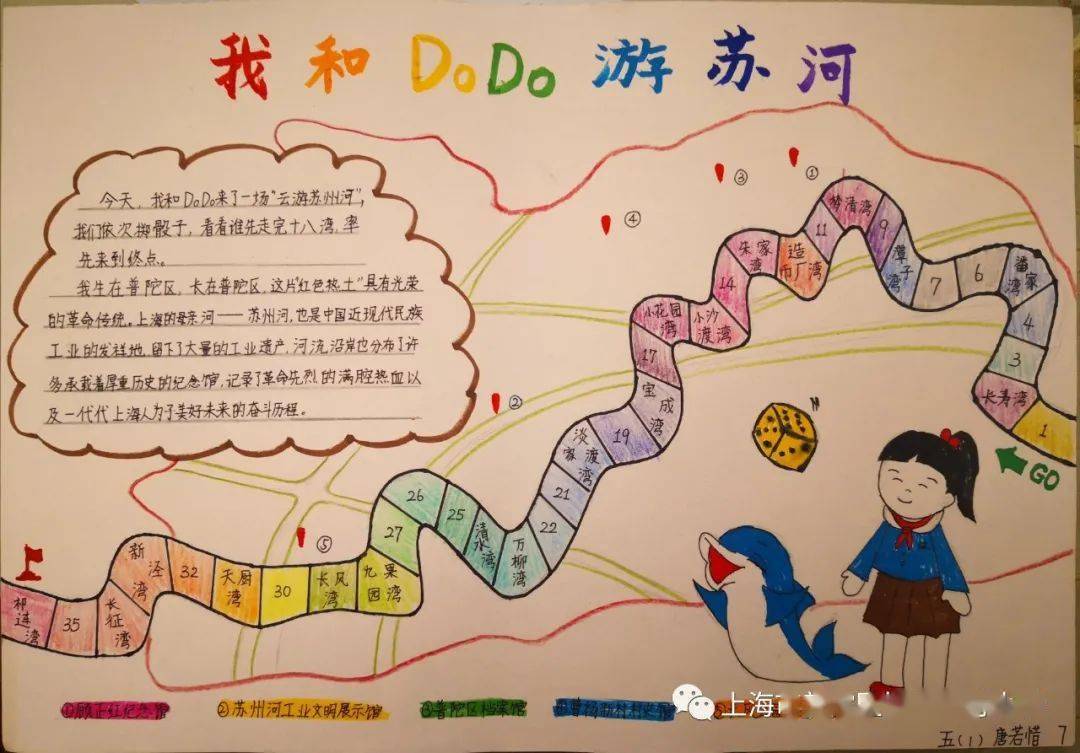 我和DoDo游苏河
今天，我和DoDo来了一场“云游苏州河”，
我们依次掷骰子，看看谁先走完十八湾，率
先来到终点。
我生在普陀区，长在普陀区，这片“红色热土”具有光荣
的革命传统。上海的母亲河——苏州河，也是中国近现代民族
工业的发祥地，留下了大量的工业遗产，河流沿岸也分布了许
多承载着厚重历史的纪念馆，记录了革命先烈的满腔热血以
及一代代上海人为了美好未来的奋斗历程。
①
③
④
②
⑤
GO
1
长寿湾
3
4
潘家湾
6
7
潭子湾
9
梦清湾
11
造币厂湾
朱家湾
14
小沙渡湾
小花园湾
17
宝成湾
19
淡家渡湾
21
22
万柳湾
清水湾
25
26
27
九果园湾
长风湾
30
天厨湾
32
新泾湾
长征湾
35
祁连湾
①顾正红纪念馆
②苏州河工业文明展示馆
③普陀区档案馆
④曹杨新村村史馆
上海市
五(1) 唐若惜 7